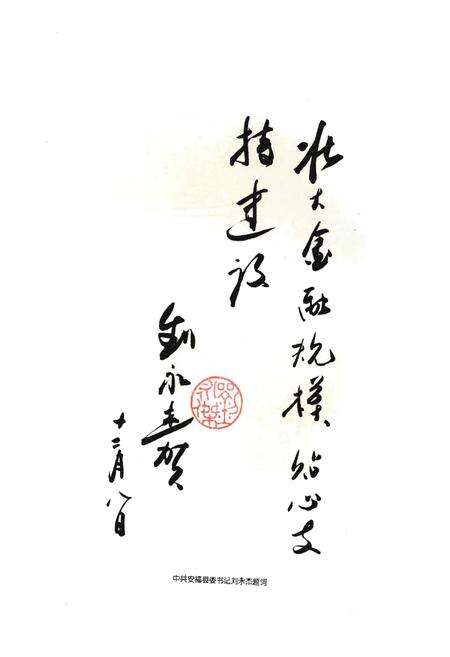 壮大金融规模 贴心支
持建设
刘永杰贺
十二月八日
中共安福县委书记刘永杰题词